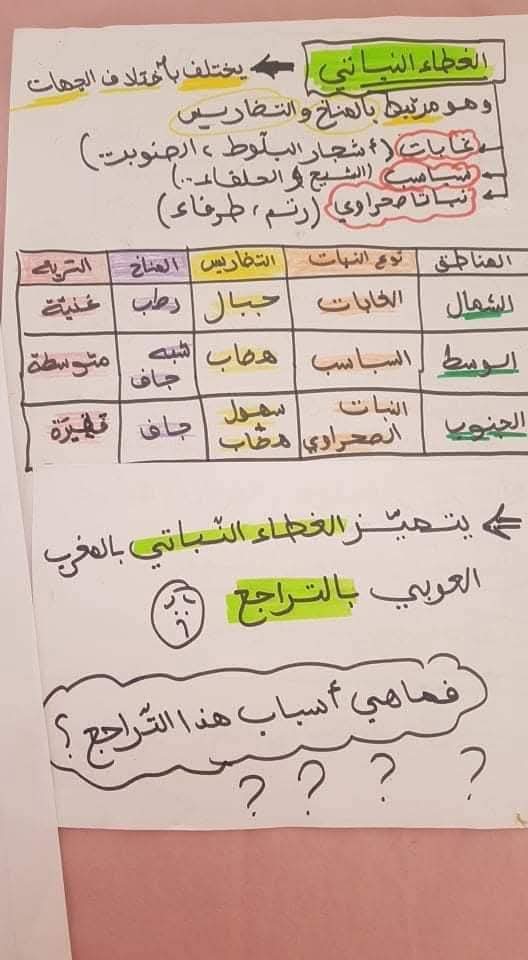 الغطاء النباتي ← يختلف باختلاف الجهات
وهو مرتبط بالمناخ والتضاريس
غابات (أشجار البلّوط، الصنوبر..)
سباسب (الشيح والحلفاء..)
نبات صحراوي (رتم، طرفاء)
المناطق نوع النبات التضاريس المناخ التربة
الشمال الغابات جبال رطب غنيّة
الوسط السباسب هضاب شبه جاف متوسطة
الجنوب النبات الصحراوي سهول هضاب جاف فقيرة
⇐ يتميّز الغطاء النّباتي بالمغرب
العربي بالتراجع
فما هي أسباب هذا التّراجع؟
? ? ? ?